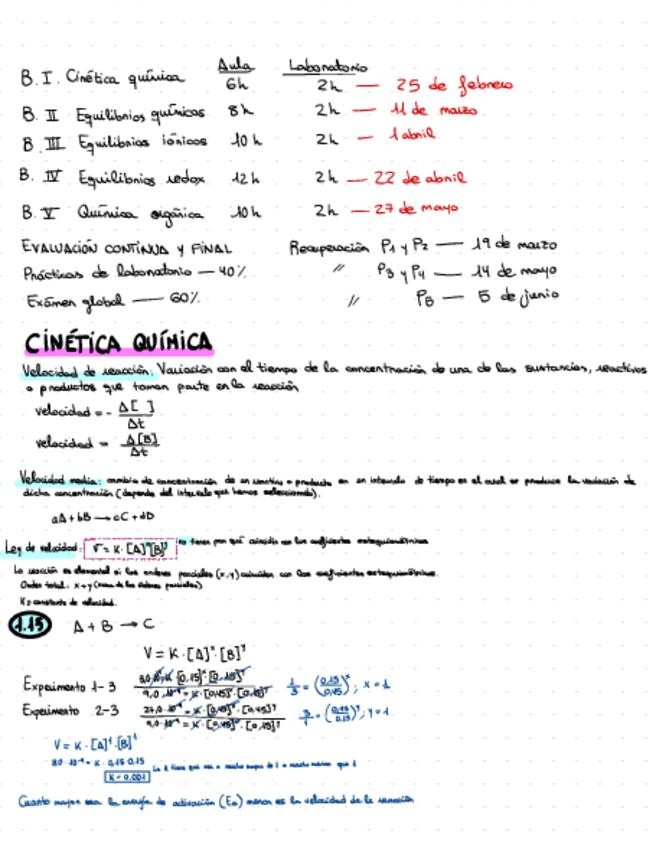 Aula Laboratorio
B. I. Cinética química 6h 2h — 25 de febrero
B. II Equilibrios químicos 8h 2h — 11 de marzo
B. III Equilibrios iónicos 10h 2h — 1 abril
B. IV Equilibrios redox 12h 2h — 22 de abril
B. V Química orgánica 10h 2h — 27 de mayo
EVALUACIÓN CONTÍNUA Y FINAL Recuperación P1 y P2 — 19 de marzo
Prácticas de laboratorio — 40% " P3 y P4 — 14 de mayo
Exámen global — 60% " P5 — 5 de junio
CINÉTICA QUÍMICA
Velocidad de reacción: Variación con el tiempo de la concentración de una de las sustancias, reactivos
o productos que toman parte en la reacción
velocidad = - Δ[ ] / Δt
velocidad = Δ[B] / Δt
Velocidad media: cambio de concentración de un reactivo o producto en un intervalo de tiempo en el cual se produce la variación de
dicha concentración (depende del intervalo que hemos seleccionado).
aA + bB → cC + dD
Ley de velocidad: v = K · [A]ˣ[B]ʸ no tienen por qué coincidir con los coeficientes estequiométricos
La reacción es elemental si los ordenes parciales (x, y) coinciden con los coeficientes estequiométricos.
Orden total: x + y (suma de los ordenes parciales)
K = constante de velocidad.
1.15 A + B → C
V = K · [A]ˣ · [B]ʸ
Experimento 1-3
Experimento 2-3
V = K · [A]¹ · [B]¹
K = 0,001
Cuanto mayor sea la energía de activación (Ea) menor es la velocidad de la reacción